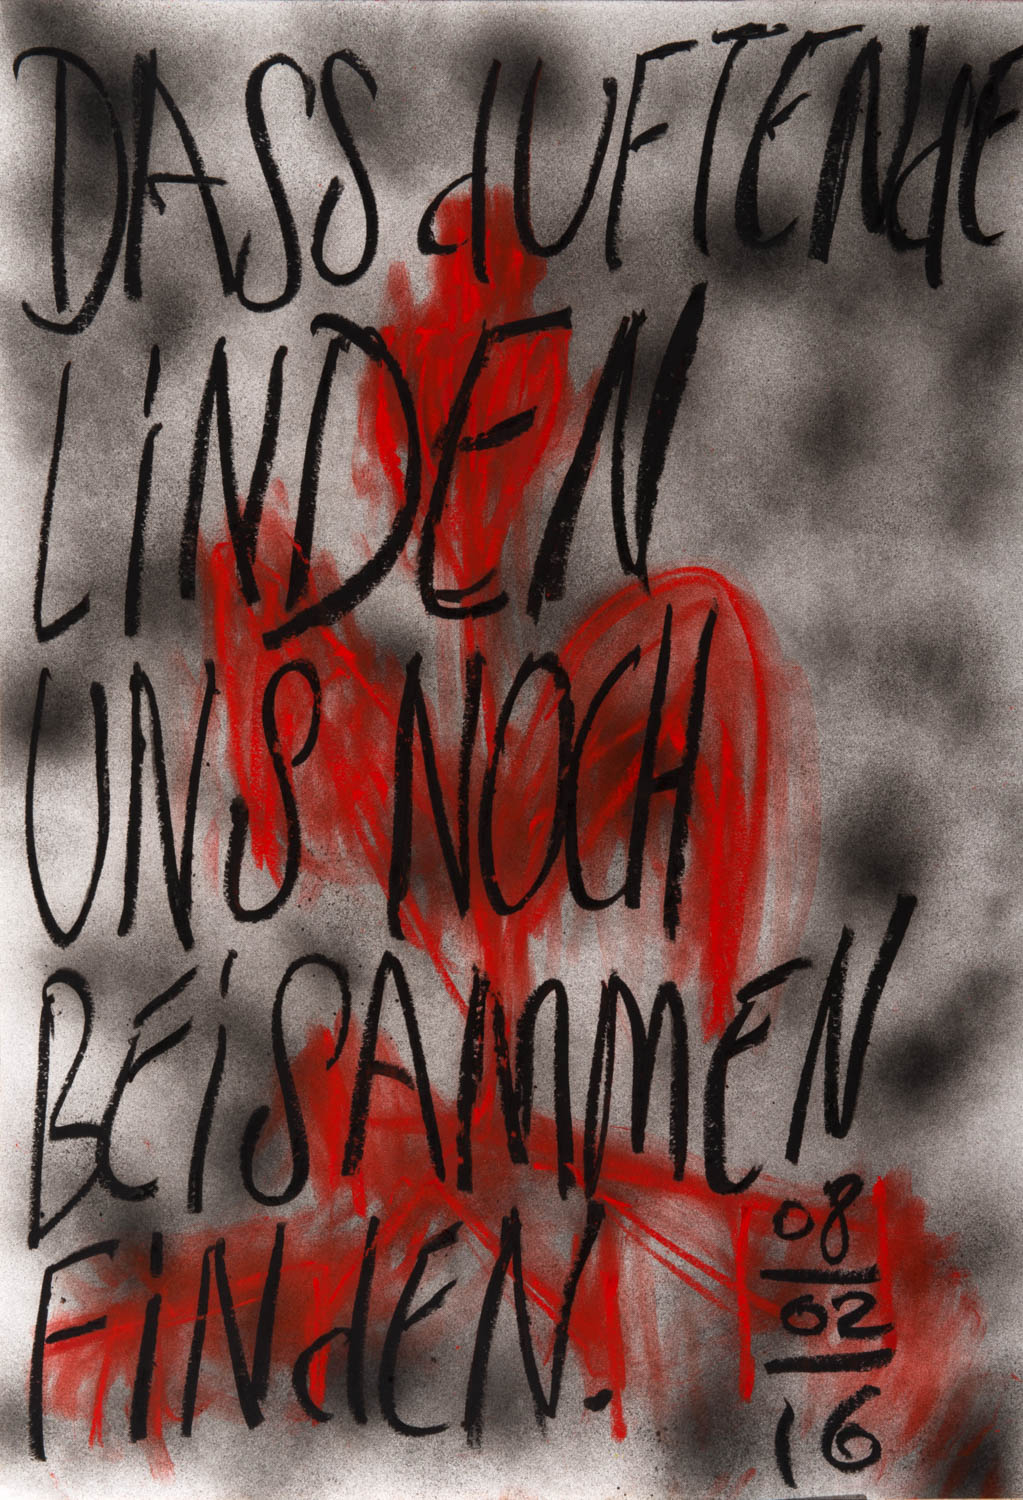 DASS dUFTENdE
LiNDEN
UNS NOCH
BEiSAMMEN
FiNdEN.
08
02
16